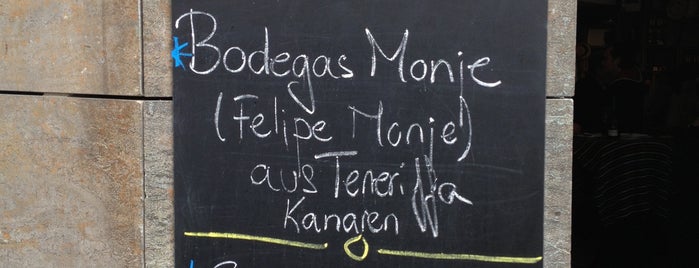 *Bodegas Monje
(Felipe Monje)
aus Teneriffa
Kanaren